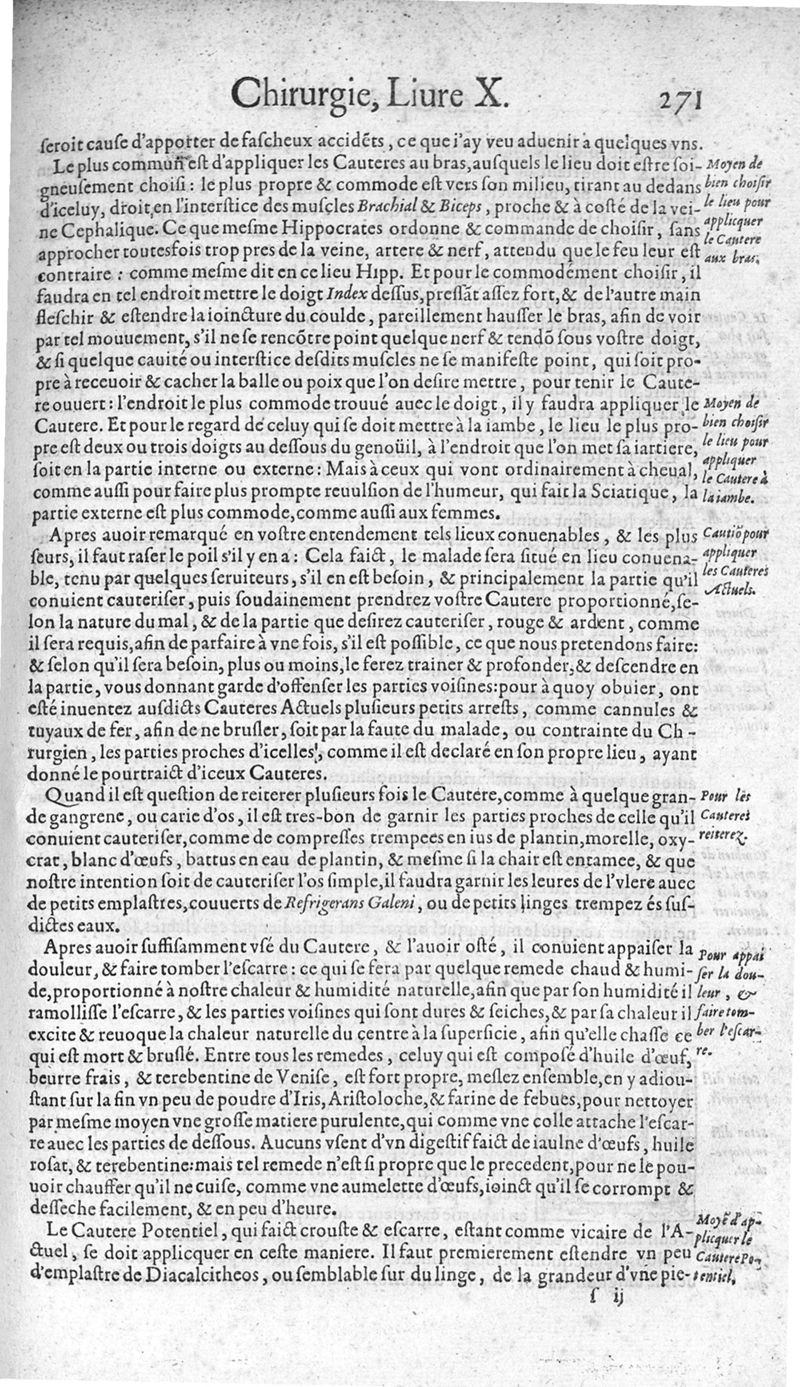 Chirurgie, Liure X. 271
ſeroit cauſe d'apporter de faſcheux accidẽts, ce que i'ay veu aduenir a quelques vns.
Le plus commun eſt d'appliquer les Cauteres au bras, auſquels le lieu doit eſtre ſoi-
gneuſement choiſi: le plus propre & commode eſt vers ſon milieu, tirant au dedans
d'iceluy, droit, en l'interſtice des muſcles Brachial & Biceps, proche & à coſté de la vei-
ne Cephalique. Ce que meſme Hippocrates ordonne & commande de choiſir, ſans
approcher toutesfois trop pres de la veine, artere & nerf, attendu que le feu leur eſt
contraire: comme meſme dit en ce lieu Hipp. Et pour le commodément choiſir, il
faudra en tel endroit mettre le doigt Index deſſus, preſſãt aſſez fort, & de l'autre main
fleſchir & eſtendre la ioincture du coulde, pareillement hauſſer le bras, afin de voir
par tel mouuement, s'il ne ſe rencõtre point quelque nerf & tendõ ſous voſtre doigt,
& ſi quelque cauité ou interſtice deſdits muſcles ne ſe manifeſte point, qui ſoit pro-
pre à receuoir & cacher la balle ou poix que l'on deſire mettre, pour tenir le Caute-
re ouuert: l'endroit le plus commode trouué auec le doigt, il y faudra appliquer le
Cautere. Et pour le regard de celuy qui ſe doit mettre à la iambe, le lieu le plus pro-
pre eſt deux ou trois doigts au deſſous du genoüil, à l'endroit que l'on met ſa iartiere,
ſoit en la partie interne ou externe: Mais à ceux qui vont ordinairement à cheual,
comme auſſi pour faire plus prompte reuulſion de l'humeur, qui fait la Sciatique, la
partie externe eſt plus commode, comme auſſi aux femmes.
Apres auoir remarqué en voſtre entendement tels lieux conuenables, & les plus
ſeurs, il faut raſer le poil s'il y en a: Cela faict, le malade ſera ſitué en lieu conuena-
ble, tenu par quelques ſeruiteurs, s'il en eſt beſoin, & principalement la partie qu'il
conuient cauteriſer, puis ſoudainement prendrez voſtre Cautere proportionné, ſe-
lon la nature du mal, & de la partie que deſirez cauteriſer, rouge & ardent, comme
il ſera requis, afin de parfaire à vne fois, s'il eſt poſſible, ce que nous pretendons faire:
& ſelon qu'il ſera beſoin, plus ou moins, le ferez trainer & profonder, & deſcendre en
la partie, vous donnant garde d'offenſer les parties voiſines: pour à quoy obuier, ont
eſté inuentez auſdicts Cauteres Actuels pluſieurs petits arreſts, comme cannules &
tuyaux de fer, afin de ne bruſler, ſoit par la faute du malade, ou contrainte du Ch-
rurgien, les parties proches d'icelles, comme il eſt declaré en ſon propre lieu, ayant
donné le pourtraict d'iceux Cauteres.
Quand il eſt queſtion de reiterer pluſieurs fois le Cautere, comme à quelque gran-
de gangrene, ou carie d'os, il eſt tres-bon de garnir les parties proches de celle qu'il
conuient cauteriſer, comme de compreſſes trempees en ius de plantin, morelle, oxy-
crat, blanc d'œufs, battus en eau de plantin, & meſme ſi la chair eſt entamee, & que
noſtre intention ſoit de cauteriſer l'os ſimple, il faudra garnir les leures de l'vlcre auec
de petits emplaſtres, couuerts de Refrigerans Galeni, ou de petits linges trempez és ſuſ-
dictes eaux.
Apres auoir ſuffiſamment vſé du Cautere, & l'auoir oſté, il conuient appaiſer la
douleur, & faire tomber l'eſcarre: ce qui ſe fera par quelque remede chaud & humi-
de, proportionné à noſtre chaleur & humidité naturelle, afin que par ſon humidité il
ramolliſſe l'eſcarre, & les parties voiſines qui ſont dures & ſeiches, & par ſa chaleur il
excite & reuoque la chaleur naturelle du centre à la ſuperficie, afin qu'elle chaſſe ce
qui eſt mort & bruſlé. Entre tous les remedes, celuy qui eſt compoſé d'huile d'œuf,
beurre frais, & terebentine de Veniſe, eſt fort propre, meſlez enſemble, en y adiou-
ſtant ſur la fin vn peu de poudre d'Iris, Ariſtoloche, & farine de febues, pour nettoyer
par meſme moyen vne groſſe matiere purulente, qui comme vne colle attache l'eſcar-
re auec les parties de deſſous. Aucuns vſent d'vn digeſtif faict de iaulne d'œufs, huile
roſat, & terebentine: mais tel remede n'eſt ſi propre que le precedent, pour ne le pou-
uoir chauffer qu'il ne cuiſe, comme vne aumelette d'œufs, ioinct qu'il ſe corrompt &
deſſeche facilement, & en peu d'heure.
Le Cautere Potentiel, qui faict crouſte & eſcarre, eſtant comme vicaire de l'A-
ctuel, ſe doit applicquer en ceſte maniere. Il faut premierement eſtendre vn peu
d'emplaſtre de Diacalcitheos, ou ſemblable ſur du linge, de la grandeur d'vne pie-
ſ ij
Moyen de
bien choiſir
le lieu pour
applicquer
le Cautere
aux bras.
Moyen de
bien choiſir
le lieu pour
appliquer
le Cautere à
la iambe.
Cautiõ pour
appliquer
les Cauteres
Actuels.
Pour les
Cauteres
reiterez.
Pour appai
ſer la dou-
leur, &
faire tom-
ber l'eſcar-
re.
Moyẽ d'ap-
plicquer le
Cautere Po-
tentiel.